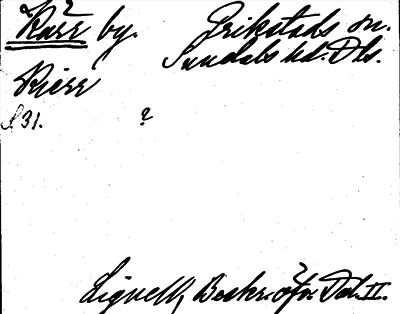 Kärr by. Erikstads sn.
Sundals hd. Dls.
Kierr
s 31. ?
Lignell, Beskr. öfv. Dal. II.